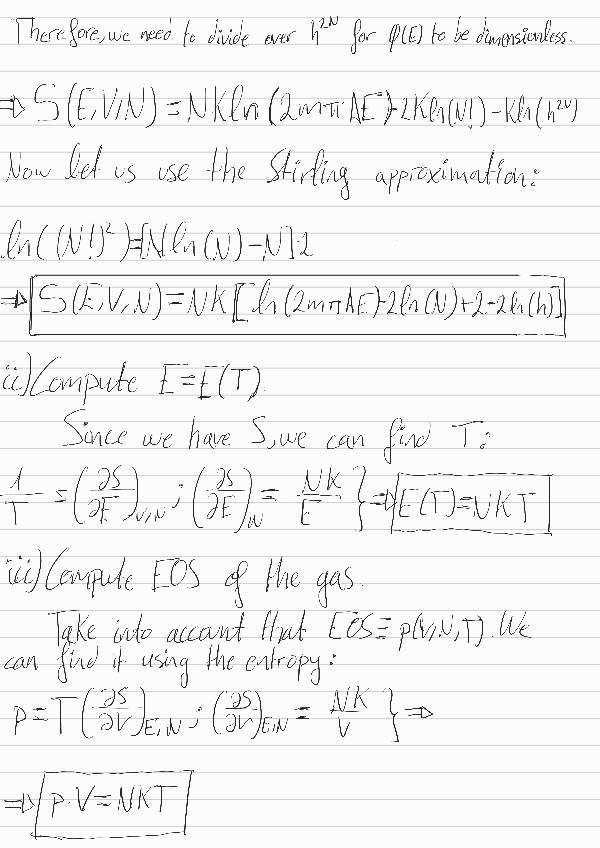 Therefore, we need to divide over h^{2N} for φ(E) to be dimensionless.
⇒ S(E,V,N) = NK ln(2mπAE) - 2K ln(N!) - K ln(h^{2N})
Now let us use the Stirling approximation:
ln((N!)²) = [N ln(N) - N]·2
⇒ S(E,V,N) = NK[ln(2mπAE) - 2ln(N) + 2 - 2ln(h)]
ii) Compute E = E(T).
Since we have S, we can find T:
1/T = (∂S/∂E)_{V,N} ; (∂S/∂E)_{N} = NK/E } ⇒ E(T) = NKT
iii) Compute EOS of the gas.
Take into account that EOS ≡ p(V,N,T). We
can find it using the entropy:
p = T(∂S/∂V)_{E,N} ; (∂S/∂V)_{E,N} = NK/V } ⇒
⇒ p·V = NKT